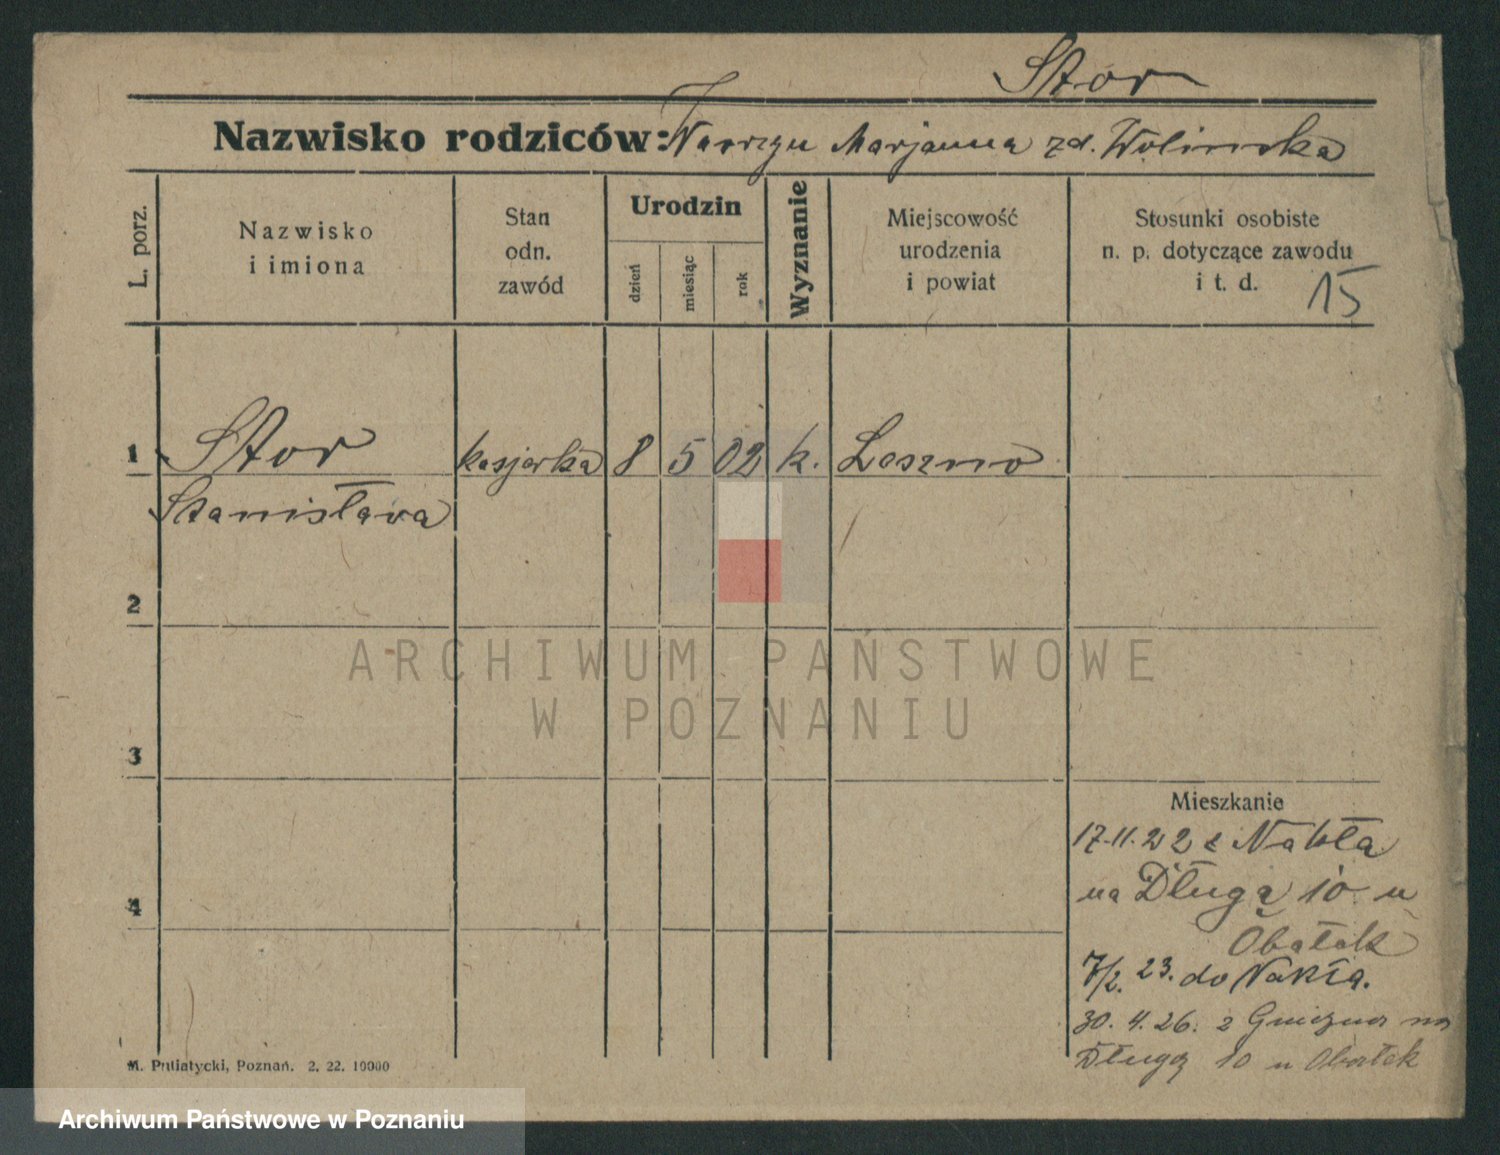 Stor
Nazwisko rodziców: Marjanna zd. Wolinska
L. porz.
Nazwisko
i imiona
Stan
odn.
zawód
Urodzin
dzień
miesiąc
rok
Wyznanie
Miejscowość
urodzenia
i powiat
Stosunki osobiste
n. p. dotyczące zawodu
i t. d.
15
1
Stor
kasjerka
8
5
02
k.
Leszno
Stanisława
2
ARCHIWUM PAŃSTWOWE
W POZNANIU
3
Mieszkanie
17.11.22 z Nakła
na Długą 10 u
Obałek
7/2. 23. do Nakła.
30. 4. 26. z Gniezna na
Długą 10 u Obałek
4
M. Putiatycki, Poznań. 2, 22. 10000
Archiwum Państwowe w Poznaniu